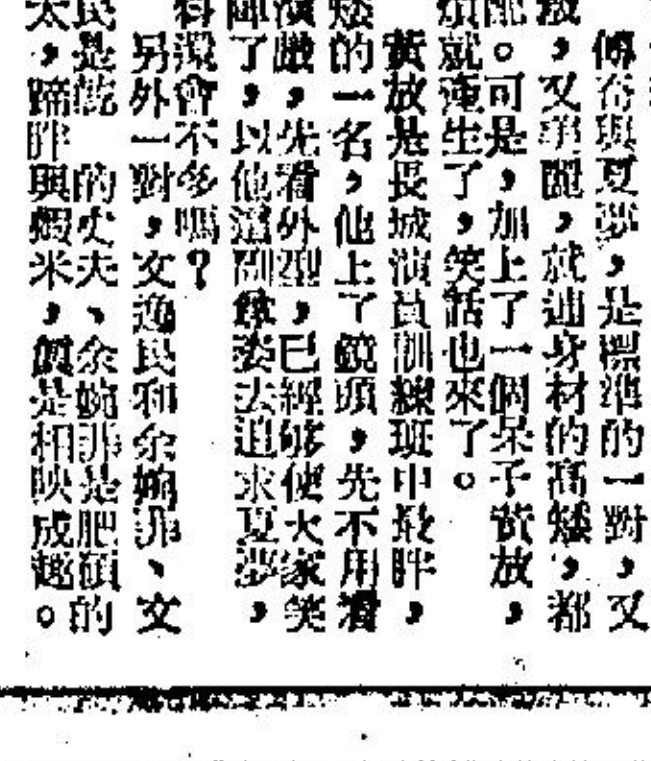 傅奇與夏夢，是標準的一對，又
，又美麗，就連身材的高矮，都
配。可是，加上了一個呆子黃放，
煩就產生了，笑話也來了。
黃放是長城演員訓練班中最胖，
矮的一名，他上了鏡頭，先不用看
演戲，先看外型，已經够使大家笑
陣了，以他這副尊姿去追求夏夢，
料還會不多嗎？
另外一對，文逸民和余婉菲、文
民是乾 的丈夫、余婉菲是肥碩的
太，蹄胖與蝦米，眞是相映成趣。